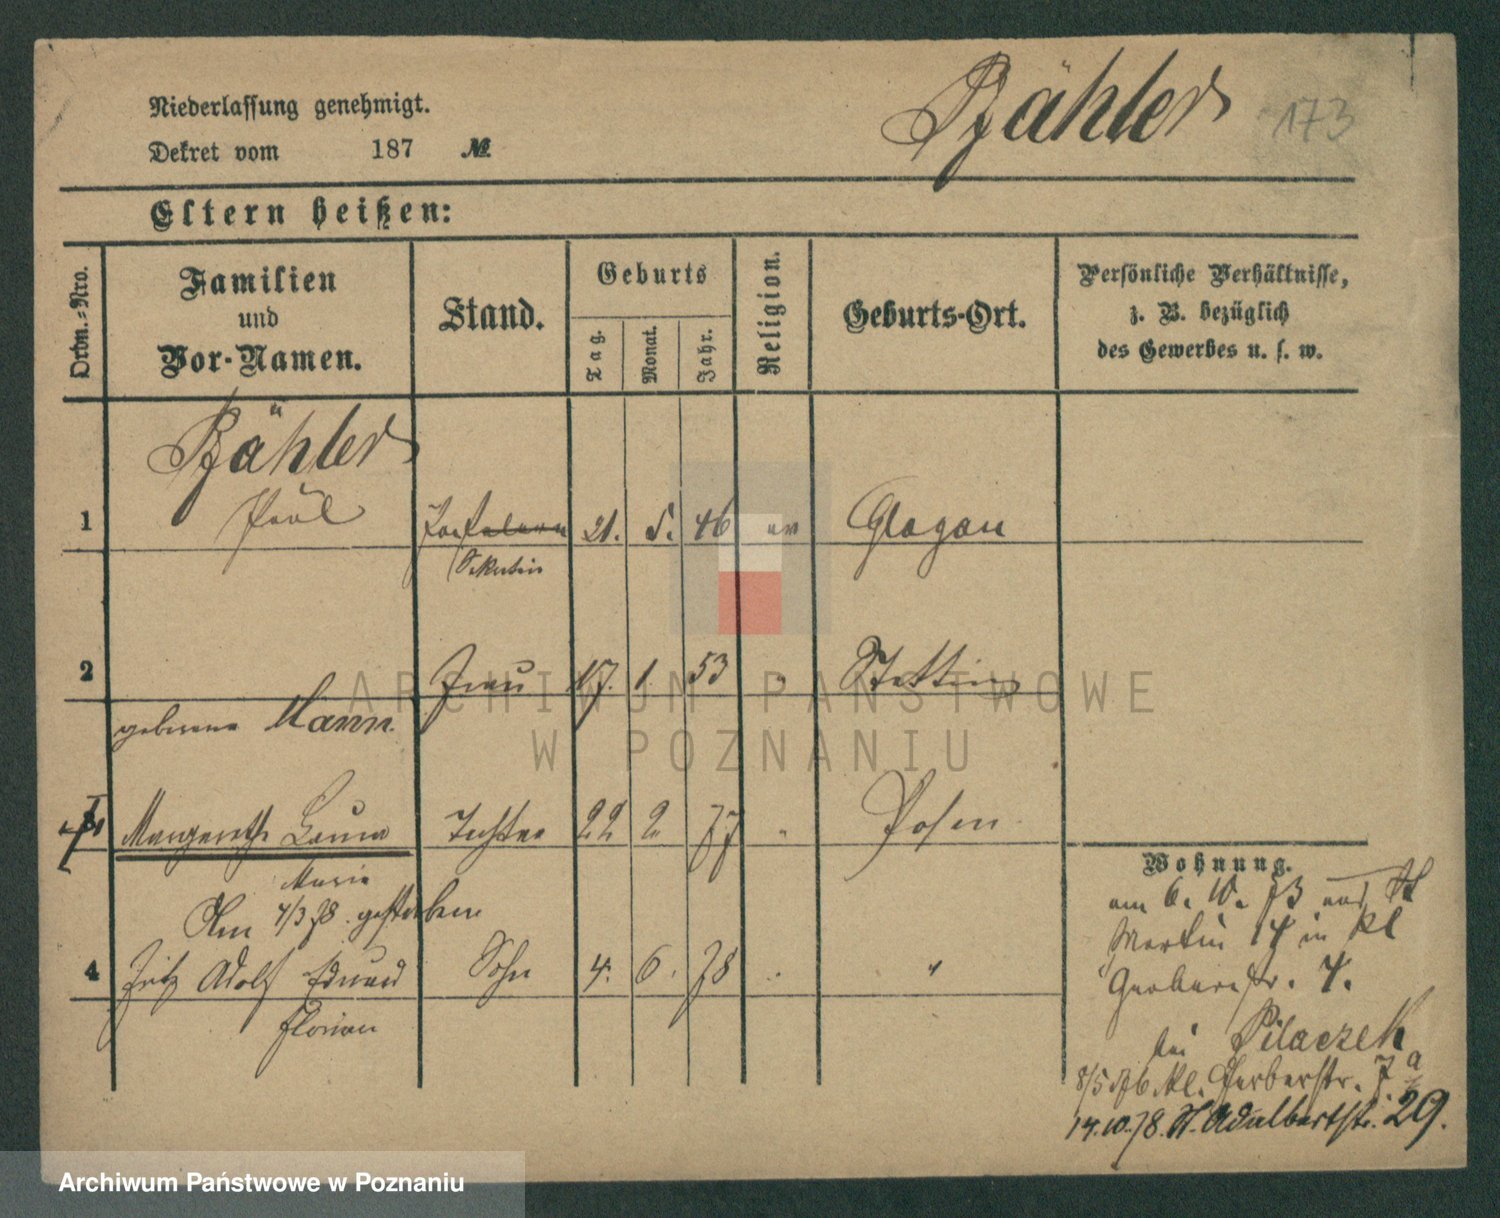 Bähler 173
Niederlassung genehmigt.
Dekret vom 187 №
Eltern heißen:
Ordn.-Nro.
Familien
und
Vor-Namen.
Stand.
Geburts
Tag.
Monat.
Jahr.
Religion.
Geburts-Ort.
Persönliche Verhältnisse,
z. B. bezüglich
des Gewerbes u. s. w.
Bähler
1 Paul 21. 5. 46 ev Glogau
2 Frau 17. 1. 53 " Stettin
geborene Mann.
Margarethe Laura Tochter 22 2 77 " Posen
Marie
Am 4/3 78. gestorben
4 Fritz Adolf Eduard Sohn 4. 6. 78 " "
Florian
Wohnung.
am 6. 10. 73 von St
Martin 14 in Kl
Gerberstr. 4.
bei Pilaczek
8/5 76 Kl. Gerberstr. 7a
14.10.78. St. Adalbertstr. 29.
ARCHIWUM PAŃSTWOWE
W POZNANIU
Archiwum Państwowe w Poznaniu